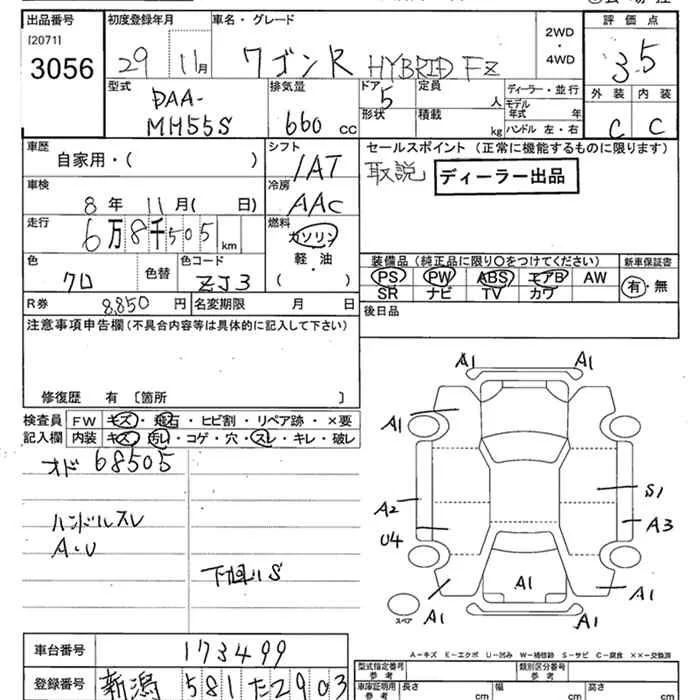 出品番号 初度登録年月 車名・グレード 評価点
[2071]
3056 29 11月 ワゴンR HYBRID FZ 2WD・4WD 3.5
型式 排気量 ドア 定員 ディーラー・並行 外装 内装
DAA-
MH55S 660cc 5 人 モデル年式 年 C C
形状 積載 kg ハンドル 左・右
車歴 シフト セールスポイント (正常に機能するものに限ります)
自家用・( ) IAT 取説 ディーラー出品
車検 冷房
8年 11月( 日) AAC
走行 燃料
6万8千505km ガソリン
軽・油
( )
装備品(純正品に限り〇をつけてください) 新車保証書
色 色替 色コード PS PW ABS エアB AW 有・無
クロ ZJ3 SR ナビ TV カワ
R券 8,850円 名変期限 月 日 後日品
注意事項申告欄(不具合内容等は具体的に記入して下さい)
修復歴 有 〔箇所 〕
検査員 FW キズ・飛石・ヒビ割・リペア跡・×要
記入欄 内装 キズ・汚レ・コゲ・穴・スレ・キレ・破レ
オド 68505
ハンドルスレ
A・U
下回りS
A1 A1
A1
A2 S1
U4 A3
A1 A1 A1
スペア A1 A1
A-キズ E-エクボ U-凹み W-補修跡 S-サビ C-腐食 ××-交換済
車台番号 173499
型式指定番号 参考 類別区分番号 参考
登録番号 新潟 581 た 2903
車庫証明用 参考 長さ cm 幅 cm 高さ cm